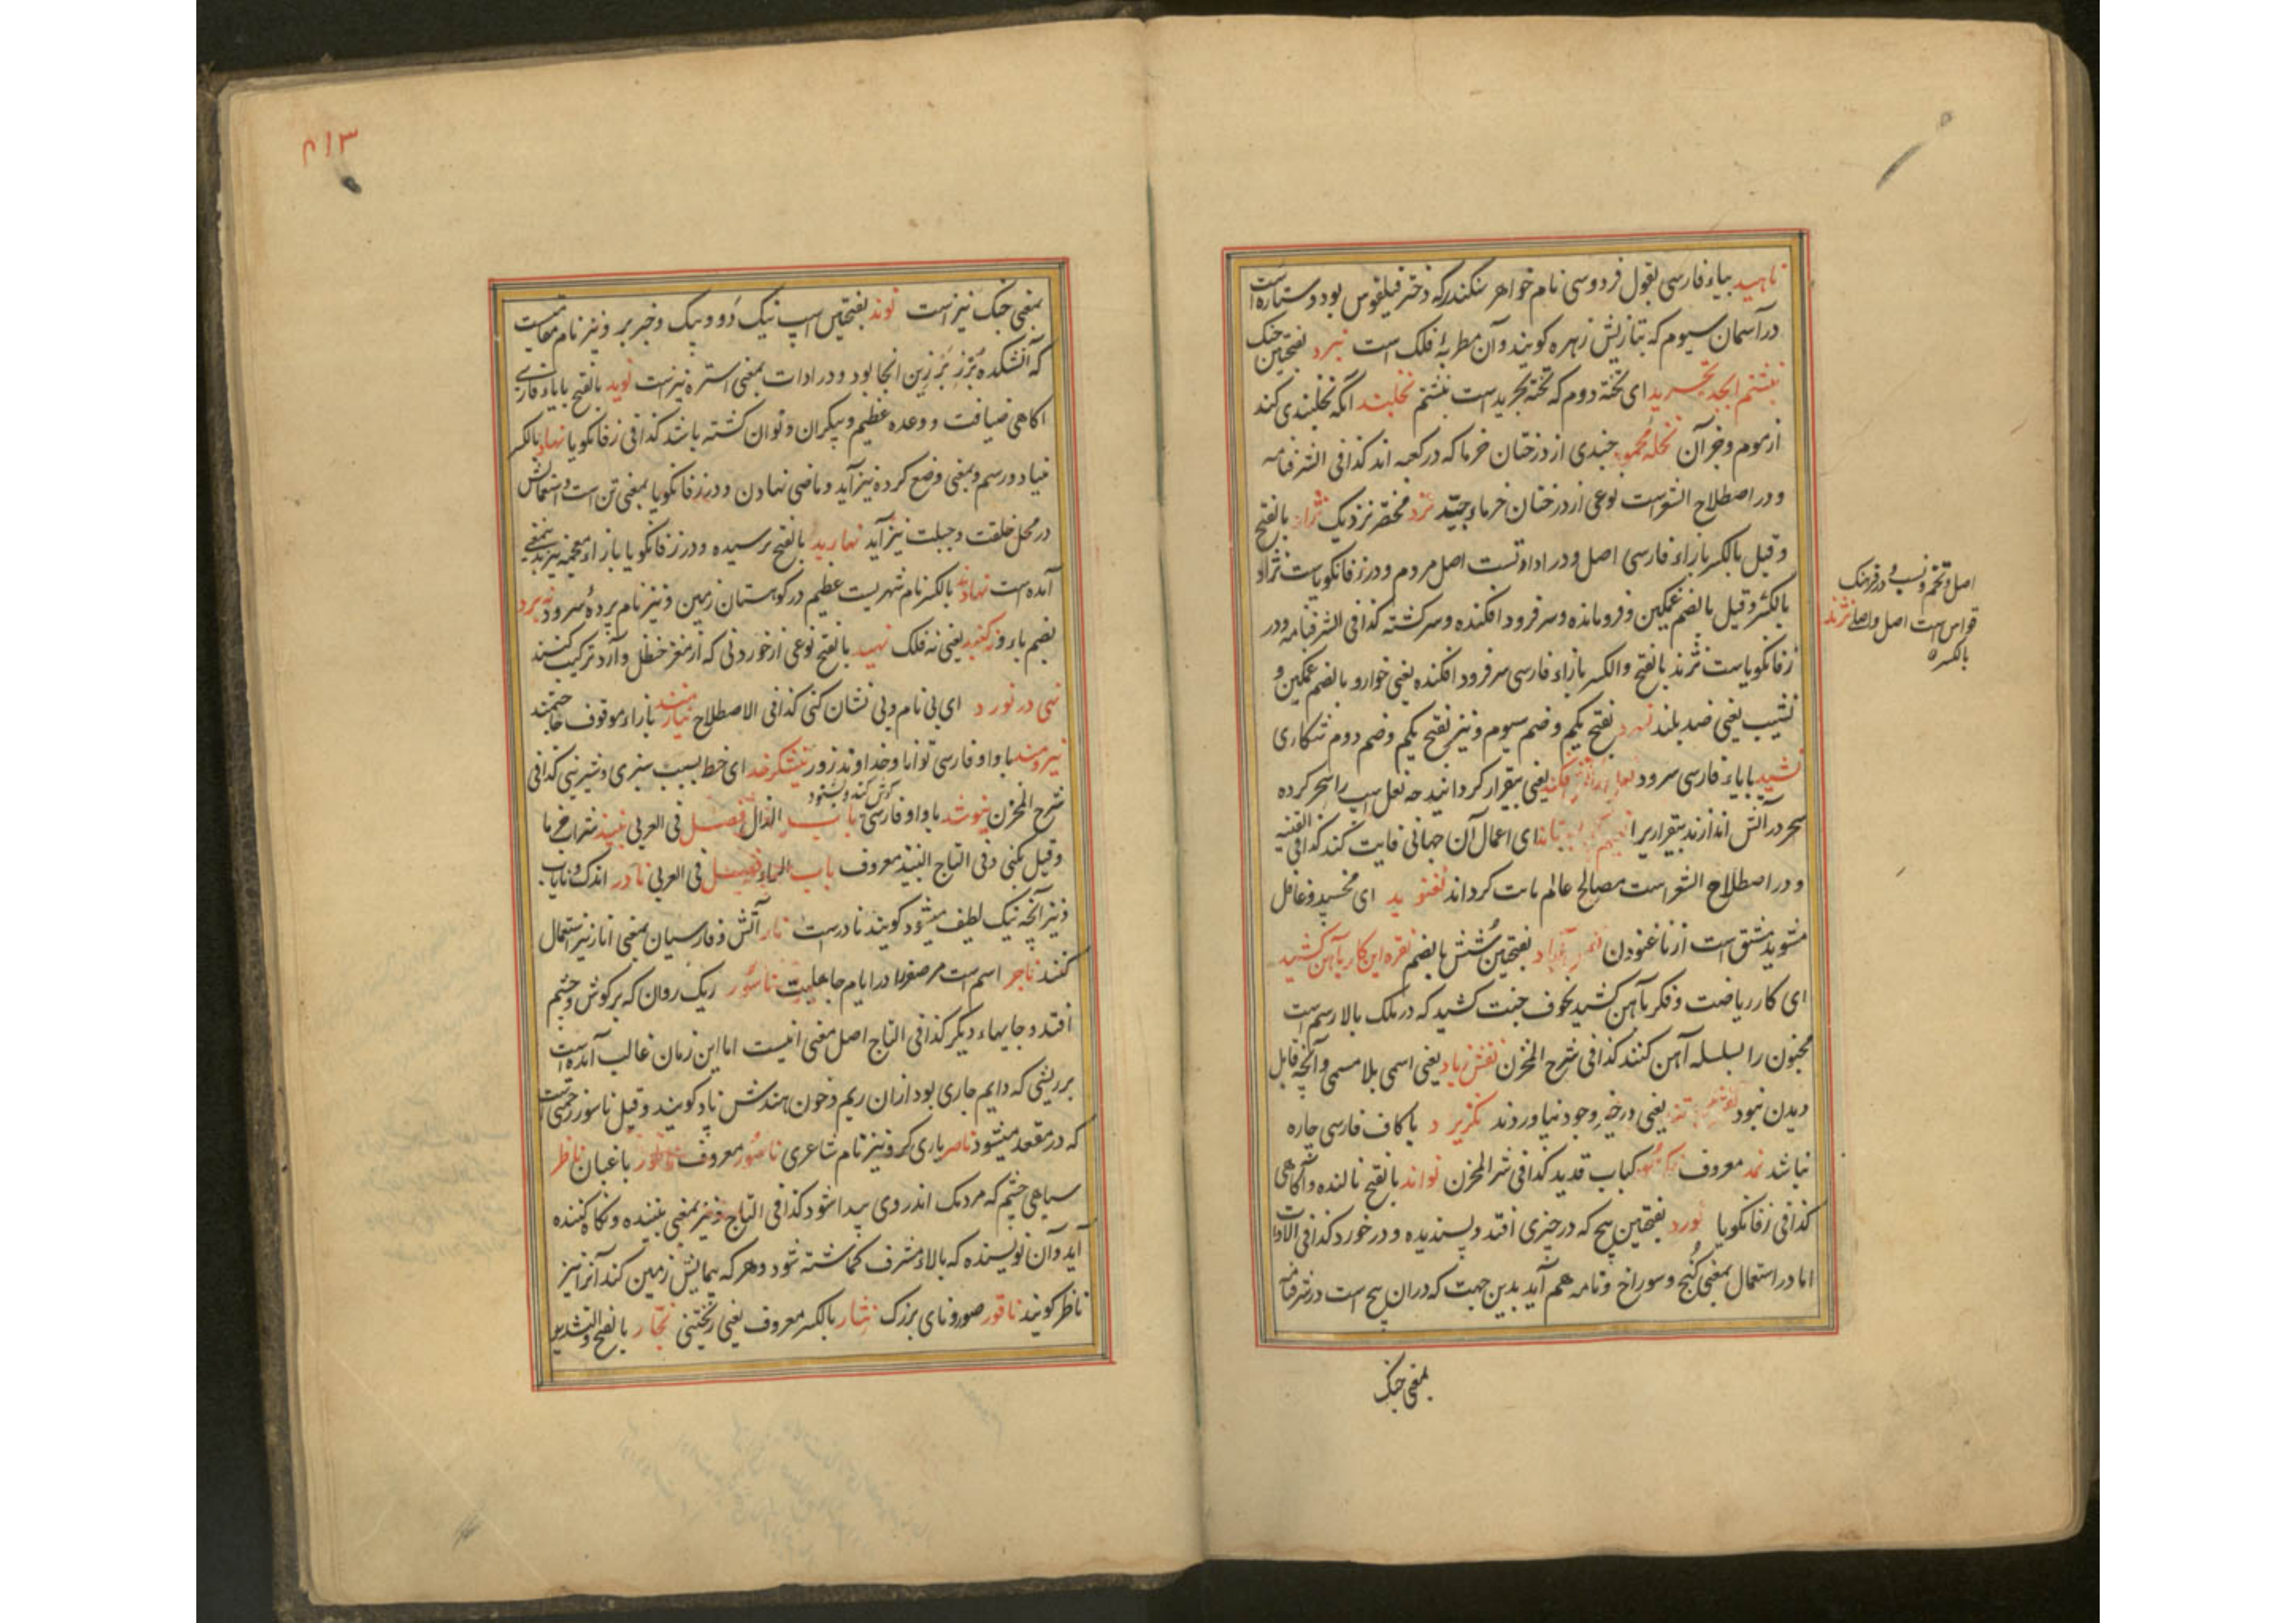 ناهید بیاء فارسی بقول فردوسی نام خواهر سکندر که دختر فیلقوس بود و ستاره است
در آسمان سیوم که بتازیش زهره کویند و آن مطربهٔ فلک است نبرد بفتحتین جنک
نبشتم ابجد تجرید ای تخته دوم که تخته تجرید است نبشتم نخلبند آنکه نخلبندی کند
از موم و جز آن نخله محمود چندی از درختان خرما که در کعبه اند کذا فی الشرفنامه
و در اصطلاح الشعراست نوعی از درختان خرماء جیّد نزد مختصر نزدیک نژاد بالفتح
و قیل بالکسر با زاء فارسی اصل و در ادات است اصل مردم و در زفانکویاست نژاد
بالکسر و قیل بالضم غمکین و فرومانده و سر فرود افکنده و سرکشته کذا فی الشرفنامه و در
زفانکویاست نژند بالفتح و الکسر بازاء فارسی سر فرود افکنده یعنی خوار و بالضم غمکین و
نشیب یعنی ضد بلند بفتح یکم و ضم سیوم و نیز بفتح یکم و ضم دوم شکاری
نشید بایاء فارسی سرود نعل در آتش فکند یعنی بیقرار کردانید چه نعل اسپ را سحر کرده
سحر در آتش اندازند بیقراری را ای اعمال آن جهانی فایت کند کذا فی القنیه
و در اصطلاح الشعراست مصالح عالم بات کرداند نغنوید ای نخسپد و غافل
مشوید مشتق است از ناغنودن بفتحتین شش بالضم نقره این کار بآهن کشید
ای کار ریاضت و فکر بآهن کشید بخوف جنت کشید که در ملک بالا رسم است
مجنون را بسلسله آهن کنند کذا فی شرح المخزن نقش زیاد یعنی اسمی بلا مسمی و آنچه قابل
دیدن نبود یعنی در خیّز وجود نیاوردند نکزیرد با کاف فارسی چاره
نباشد نمد معروف کباب قدید کذا فی شرح المخزن نواند بالفتح نالنده و آکاهی
کذا فی زفانکویا نورد بفتحتین پیچ که در چیزی افتد و پسندیده و در خورد کذا فی الادات
اما در استعمال بمعنی کنج و سوراخ و نامه هم آید بدین جهت که در ان پیچ است در شرفنامه
بمعنی جنک
اصل و تخم و نسب و در فرهنک
قواس است اصل و اصلی نژند
بالکسره
۳۱۳
بمعنی جنک نیز است نوند بفتحتین اسپ نیک دَو و پیک و خبر بر و نیز نام مقامیست
که آتشکده برزین انجا بود و در ادات بمعنی استره نیز است نوید بالفتح بایاء فارسی
آکاهی ضیافت و وعده عظیم و بیکران و نوان کشته باشد کذا فی زفانکویا نهاد بالکسر
بنیاد و رسم و بمعنی وضع کرده نیز آید و ماضی نهادن و در زفانکویا بمعنی تن است و استعمالش
در محل خلقت و جبلت نیز آید نهارید بالفتح ترسیده و در زفانکویا بازاء معجمه نیز بدینمعنی
آمده است نهاوند بالکسر نام شهریست عظیم در کوهستان زمین و نیز نام پردهٔ سرود نبرد
بضم باء و نه کنبد یعنی نه فلک نهید بالفتح نوعی از خوردنی که از مغز حنظل و آرد ترکیب کنند
نئی در نورد ای بی نام و بی نشان کنی کذا فی الاصطلاح نیازمند بازاء موقوف حاجتمند
نیرومند با واو فارسی توانا و خداوند زور نیشکر خد ای خط بسبب سبزی و شیرینی کذا فی
شرح المخزن نیوشد با واو فارسی کوش کند و بشنود باب الذال فصل فی العربی نبیذ شراب خرما
و قیل بکنی و فی التاج النبیذ معروف باب الراء فصل فی العربی نادر اندک و نایاب
و نیز آنچه نیک لطیف میشود کویند نادر است نار آتش و فارسیان بمعنی انار نیز استعمال
کنند ناجر اسم است مر صفر را در ایام جاهلیت ناسور ریک روان که بر کوش و چشم
افتد و جایهاء دیکر کذا فی التاج اصل معنی انیست اما این زمان غالب آمده است
بر ریشی که دایم جاری بود ازان ریم و خون هندش ناد کویند و قیل ناسور زحمتی است
که در مقعد میشود ناصر یاری کر و نیز نام شاعری ناصور معروف ناطور باغبان ناظر
سیاهی چشم که مردمک اندر وی پیدا شود کذا فی التاج و نیز بمعنی بیننده و نکاه کننده
آید و آن نویسنده که بالاء مشرف کماشته شود و هر که پیمایش زمین کند آنرا نیز
ناظر کویند ناقور صور و نای بزرک نثار بالکسر معروف یعنی ریختنی نجّار بالفتح و التشدید